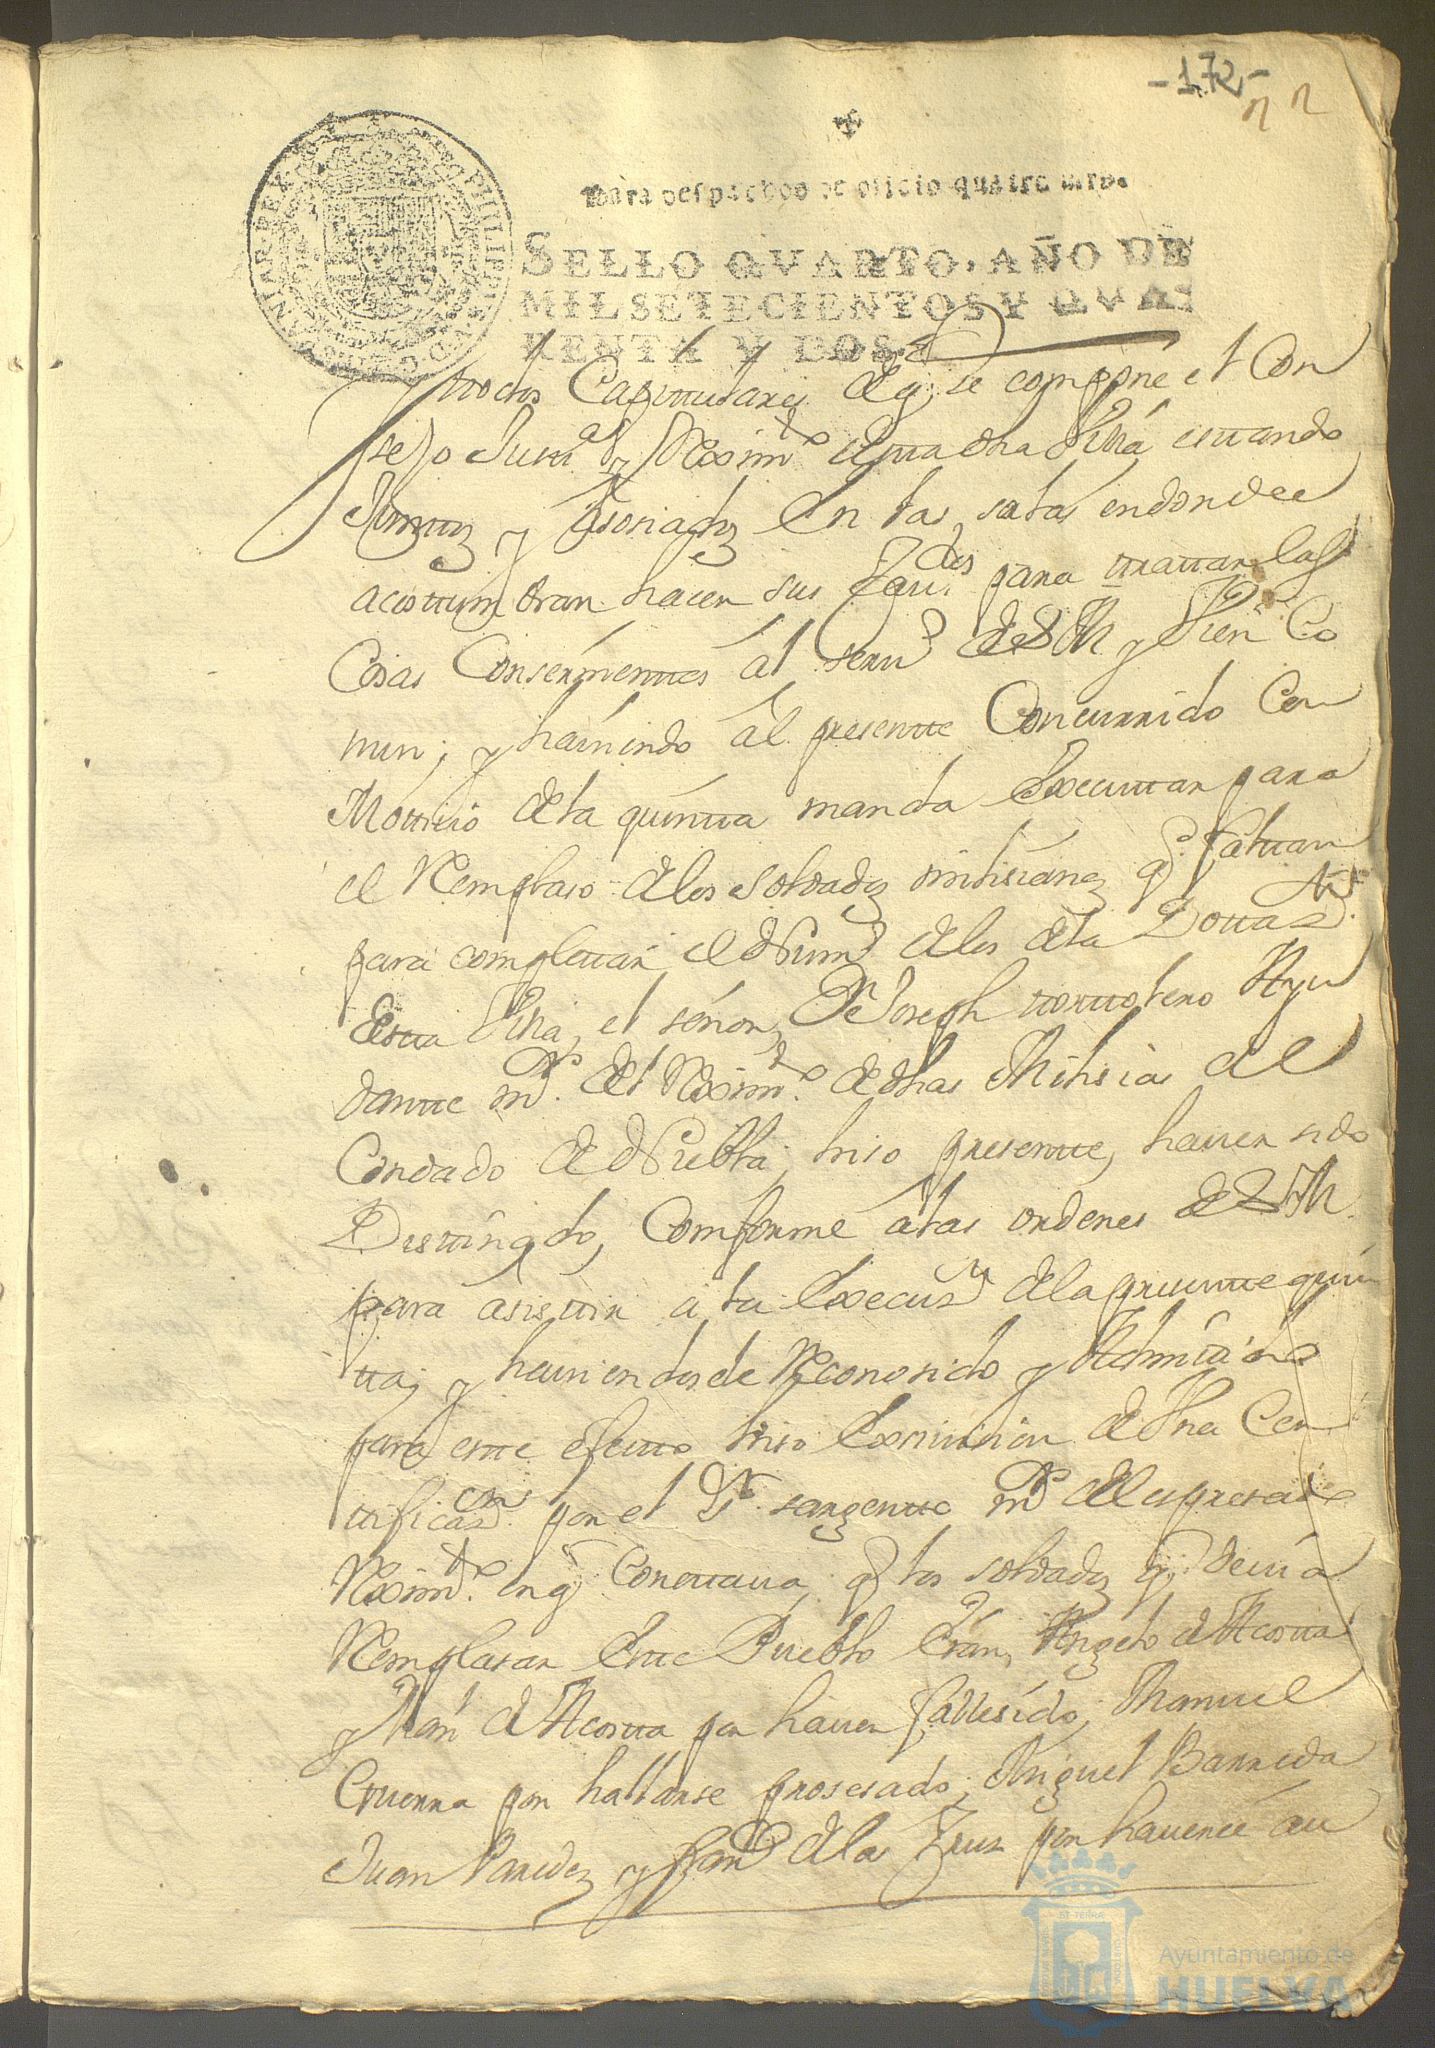 -172-
22
Para despachos de oficio quatro mrs.
SELLO QVARTO, AÑO DE
MIL SETECIENTOS Y QVA-
RENTA Y DOS.
y ttodos Capittulares de q se compone el Con
sejo Justtª y Reximto de estta dha Villa esttando
Junttos y Asosiados en las salas en donde
acosttumbran hacer sus Cavdos para ttrattar las
Cosas Conserñienttes al servº de S M y Vien Co
mun; y haviendo al presentte Concurrido Con
Mottivo de la quintta manda Executtar para
el Remplaso de los soldados milisianos q. faltan
para complettar el Numº de los de la Dottasn
Estta Villa, el señor Dn Joseph ttorttolero Ayu
dantte mr. del Reximto. de dhas Milisias del
Condado de Niebla, hiso presentte, haver sido
Desttinado, Comforme a las ordenes de S M.
para asisttir a la Execusn de la presentte quin
tta, y haviendosele Reconosido y Admittido
para estte efectto hiso Exsivision de Vna Cer
ttificasn por el Sr. sargentte mr del expresado
Reximto. en q Consttava, q los soldados q. devia
Remplasar Estte Pueblo Eran, Angelo de Acostta
y Juan de Acostta por haver fallesido, Manuel
Guerra por hallarse prosesado; Miguel Barreda
Juan Paredes y Franº de la Cruz por haverse au
Ayuntamiento de
HUELVA